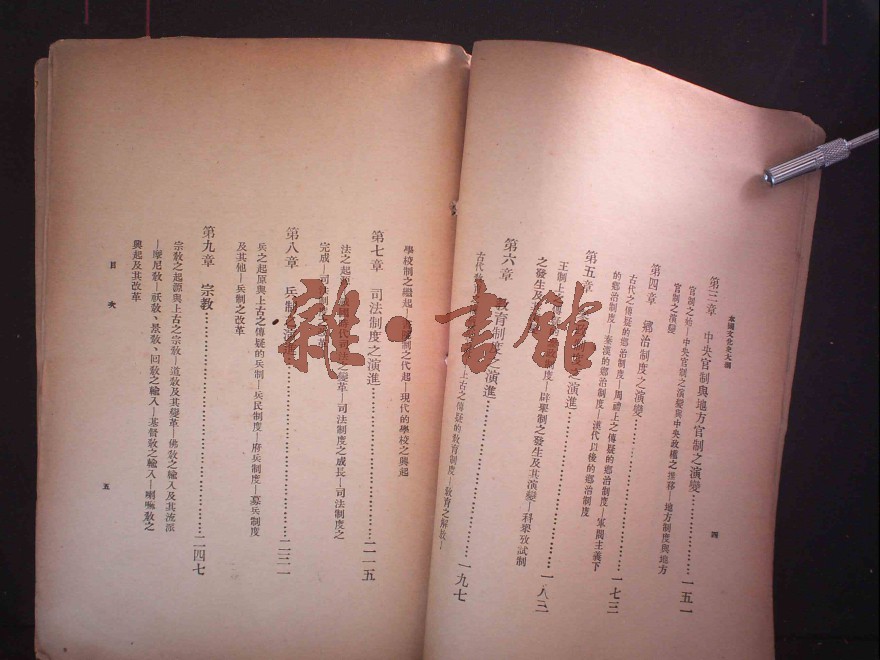 本國文化史大綱
第三章 中央官制與地方官制之演變……一五一
官制之始—中央官制之演變與中央政權之推移—地方制度與地方
官制之演變
第四章 鄉治制度之演變……一七三
古代之傳疑的鄉治制度—周禮上之傳疑的鄉治制度—軍閥主義下
的鄉治制度—秦漢的鄉治制度—漢代以後的鄉治制度
第五章 制度之演進……一八三
王制上之傳疑的 制度—辟舉制之發生及其演變—科舉攷試制
之發生及
第六章 教育制度之演進……一九七
古代教 上古之傳疑的教育制度—教育之解放—
四
學校制之繼起— 制之代起—現代的學校之興起
第七章 司法制度之演進……二一五
法之起源 時代司法之變革—司法制度之成長—司法制度之
完成—司法制 革
第八章 兵制之演進……二三一
兵之起原與上古之傳疑的兵制—兵民制度—府兵制度—募兵制度
及其他—兵制之改革
第九章 宗教……二四七
宗教之起源與上古之宗教—道教及其變革—佛教之輸入及其流派
—摩尼教—祆教、景教、回教之輸入—基督教之輸入—喇嘛教之
興起及其改革
目次
五
雜·書館